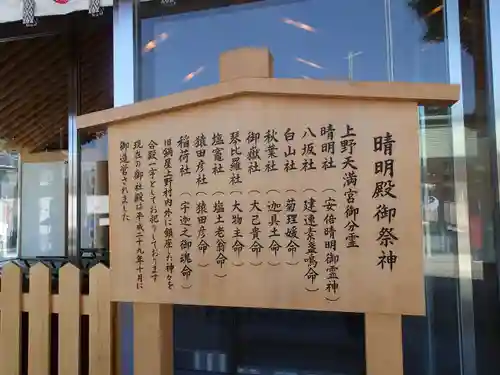 晴明殿御祭神
上野天満宮御分霊
晴明社(安倍晴明御霊神)
八坂社(建速素盞嗚命)
白山社(菊理媛命)
秋葉社(迦具土命)
御嶽社(大己貴命)
琴比羅社(大物主命)
塩竈社(塩土老翁命)
猿田彦社(猿田彦命)
稲荷社(宇迦之御魂命)
旧鍋屋上野村内外に鎮座した神々を
合殿一宇としてお祀りしております
現在の御社殿は平成二十九年十月に
御造営されました